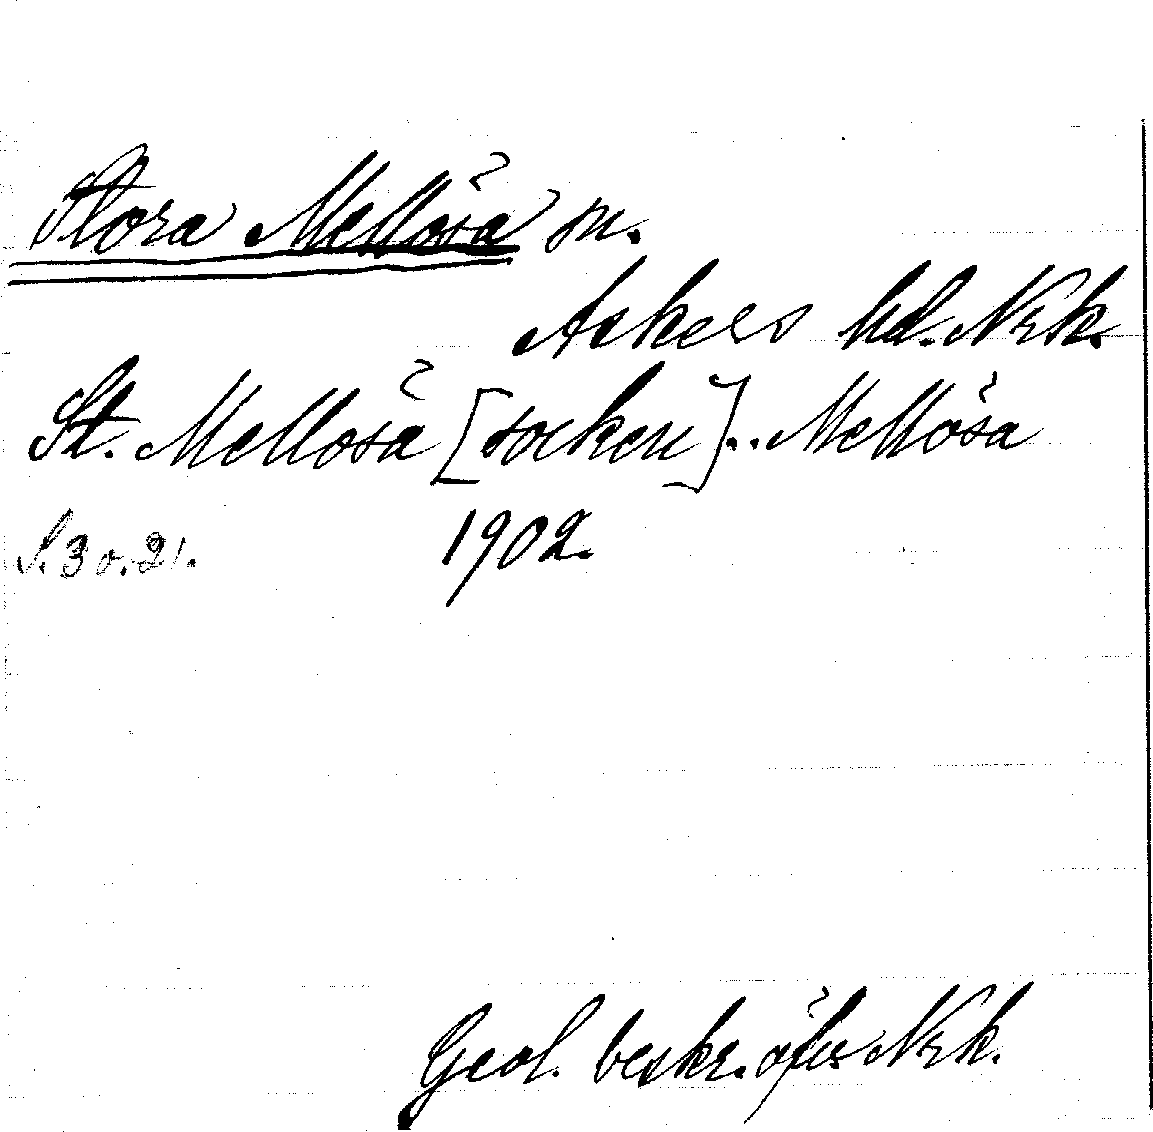 Stora Mellösa sn.
Askers hd. Nrk.
St. Mellösa [socken].. Mellösa
S. 3 o. 21. 1902.
Geol. beskr. öfver Nrk.